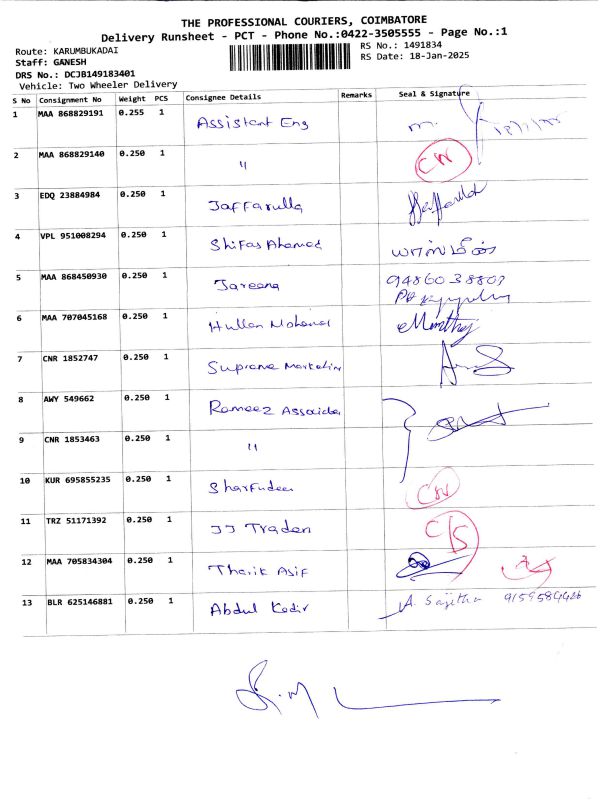 THE PROFESSIONAL COURIERS, COIMBATORE
Delivery Runsheet - PCT - Phone No.:0422-3505555 - Page No.:1
Route: KARUMBUKADAI
RS No.: 1491834
Staff: GANESH
RS Date: 18-Jan-2025
DRS No.: DCJB149183401
Vehicle: Two Wheeler Delivery
S No Consignment No Weight PCS Consignee Details Remarks Seal & Signature
1 MAA 868829191 0.255 1 Assistant Eng
2 MAA 868829140 0.250 1 " CW
3 EDQ 23884984 0.250 1 Jaffarulla
4 VPL 951008294 0.250 1 Shifas Ahamed யாஸ்மீன்
5 MAA 868450930 0.250 1 Jareena
6 MAA 707045168 0.250 1
7 CNR 1852747 0.250 1 Supreme
8 AWY 549662 0.250 1 Rameez
9 CNR 1853463 0.250 1 "
10 KUR 695855235 0.250 1 CW
11 TRZ 51171392 0.250 1 JJ C/S
12 MAA 705834304 0.250 1 Tharik Asif
13 BLR 625146881 0.250 1 Abdul Kadir A. Sajitha